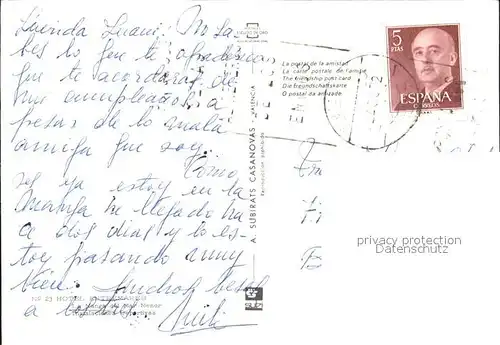 Querida Luani: No sa
bes lo que te agradezco
que te acordaras de
mi cumpleaños a
pesar de lo mala
amiga que soy.
Como
ves ya estoy en la
Manga he llegado ha
a dos dias y lo es-
toy pasando muy
bien. Muchos besos
a todos.
Nº 23 HOTEL ENTREMARES
La Manga del Mar Menor
A. SUBIRATS CASANOVAS
VALENCIA
La postal de la amistad
La carte postale de l'amitié
The friendship post-card
Die freundschaftskarte
O postal da amizade
5
PTAS
ESPAÑA
CORREOS
privacy protection
Datenschutz